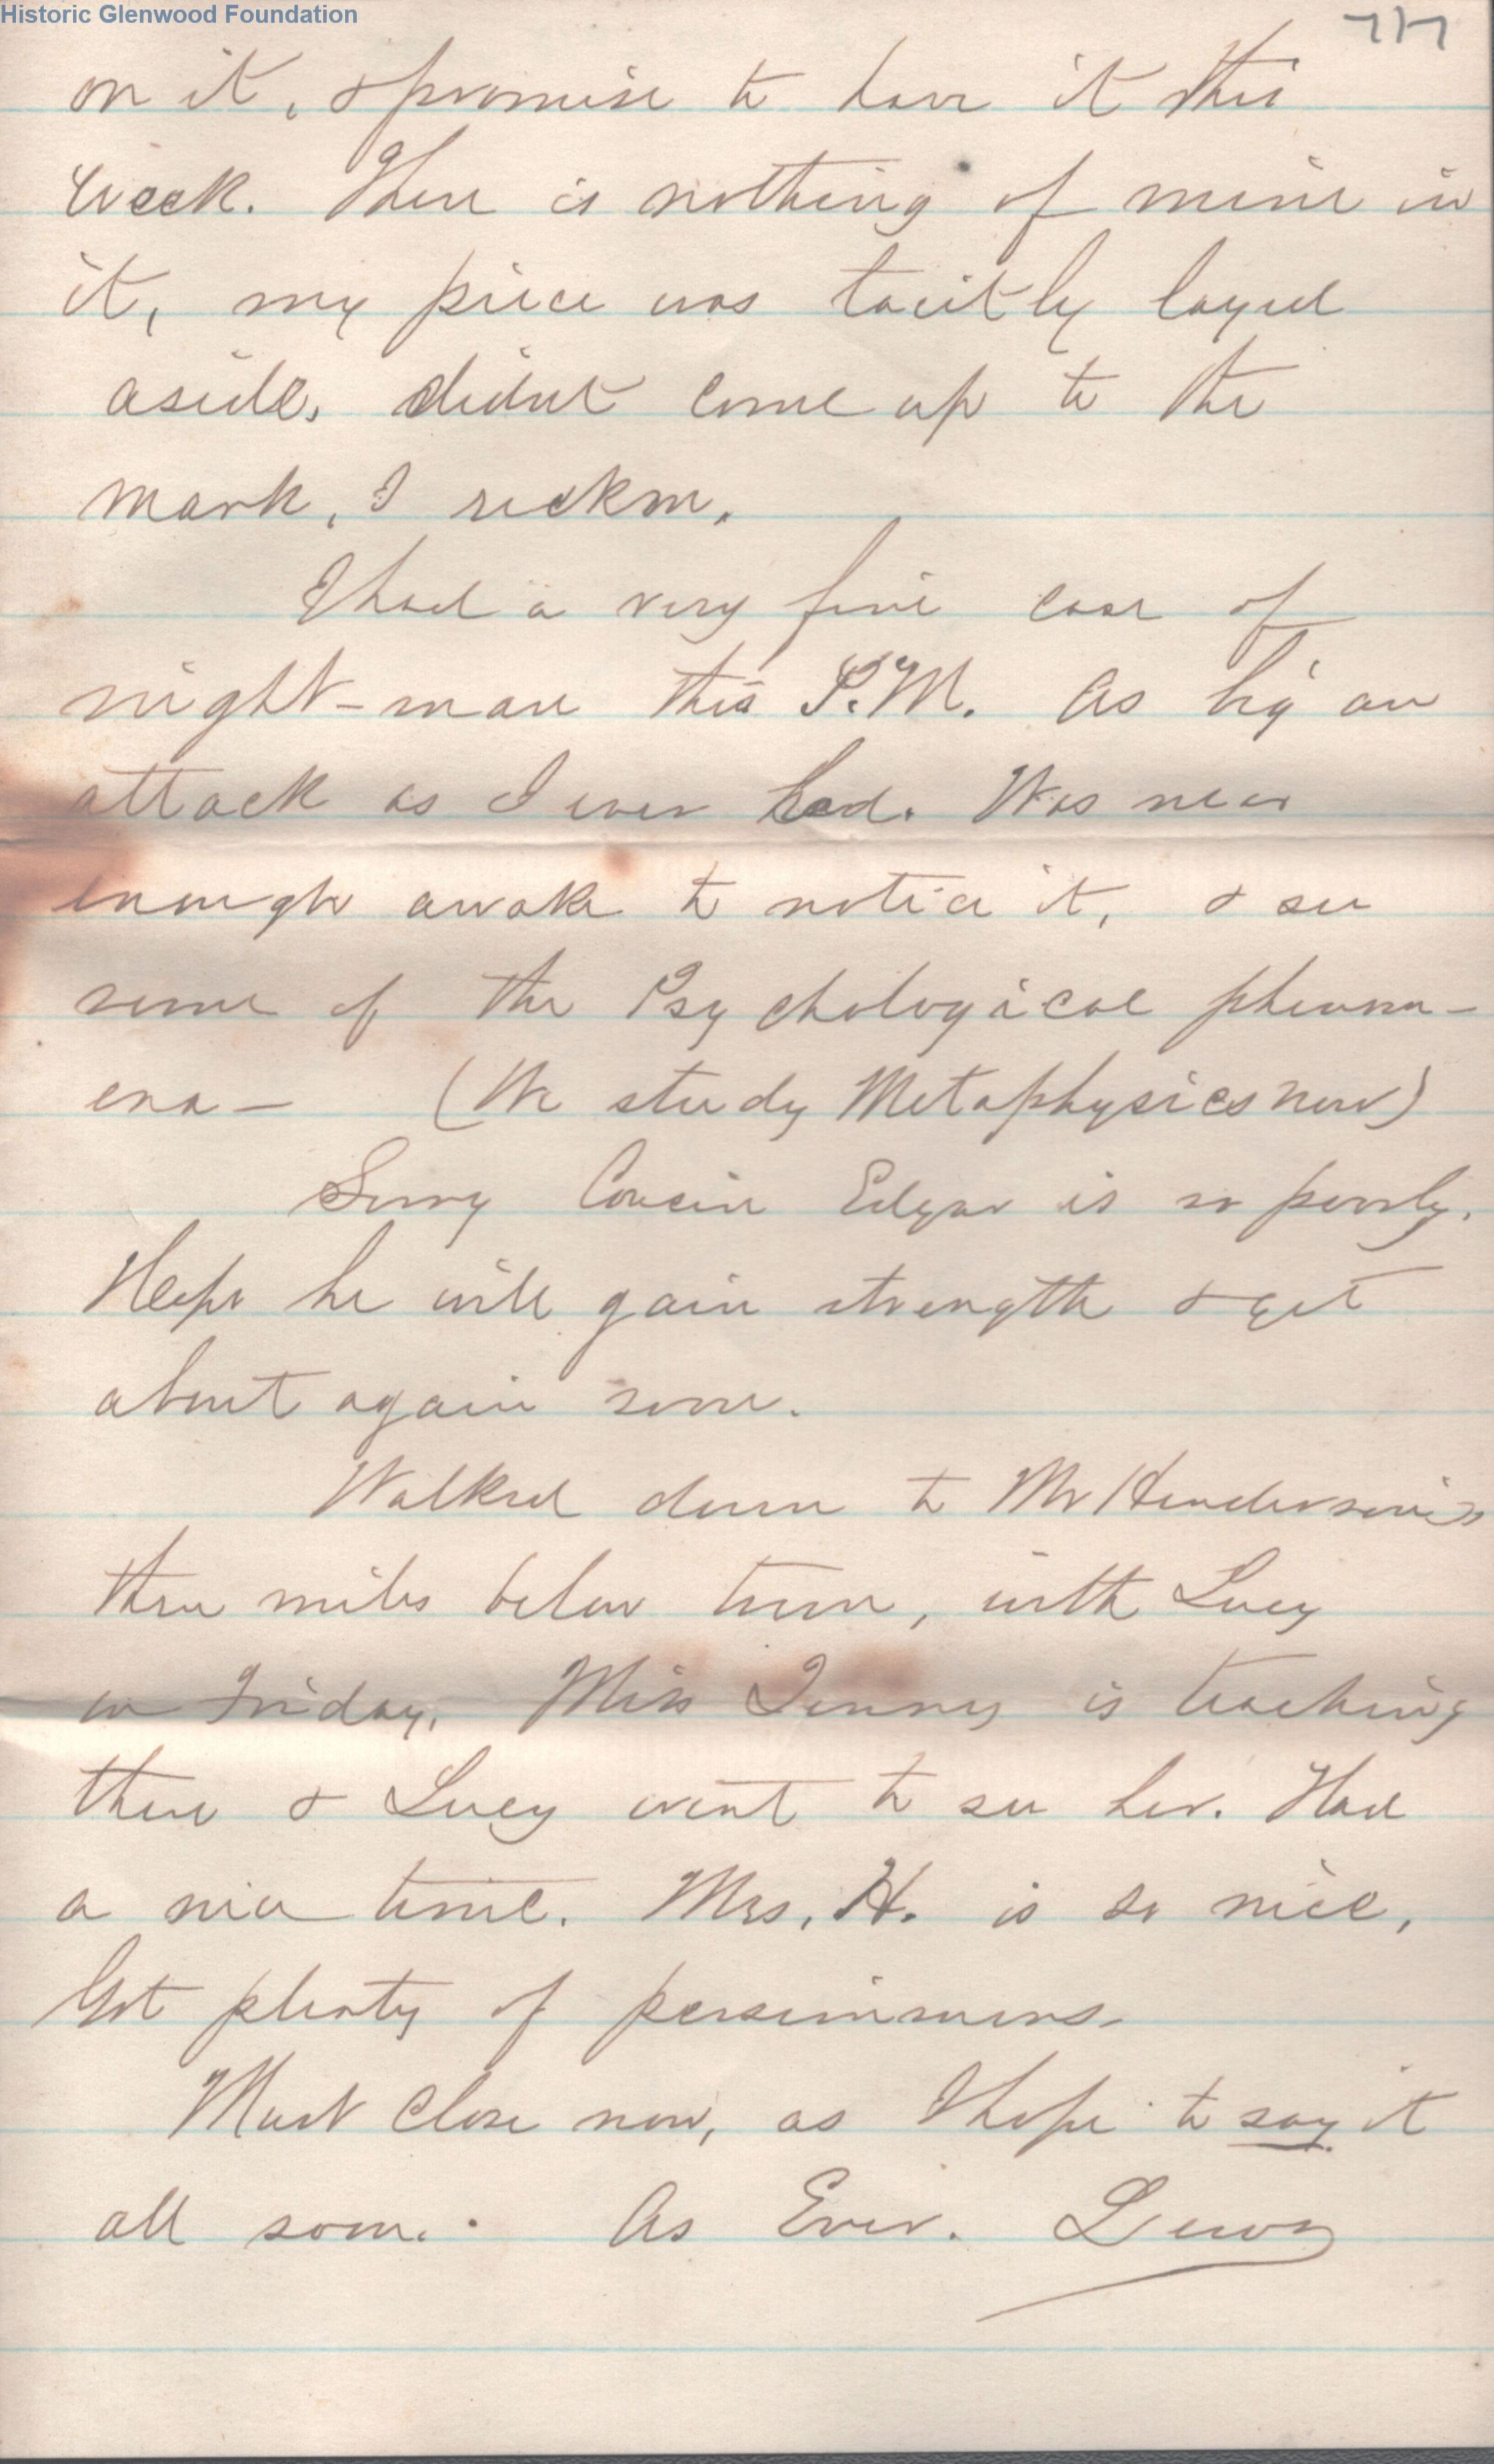 Historic Glenwood Foundation
on it, & promise to have it this
week. There is nothing of mine in
it, my piece was tacitly layed
aside, didnt come up to the
mark, I reckon.
I had a very fine case of
night-mare this P.M. As big an
attack as I ever had. Was near
enough awake to notice it, & see
some of the Psychological phenom-
ena- (We study Metaphysics now)
Sorry Cousin Edgar is so poorly.
Hope he will gain strength & get
about again soon.
Walked down to Mr Henderson's
three miles below town, with Lucy
on Friday. Miss Jenny is teaching
there & Lucy went to see her. Had
a nice time. Mrs. H. is so nice,
Got plenty of persimmons.
Must close now, as I hope to say it
all soon. As Ever.